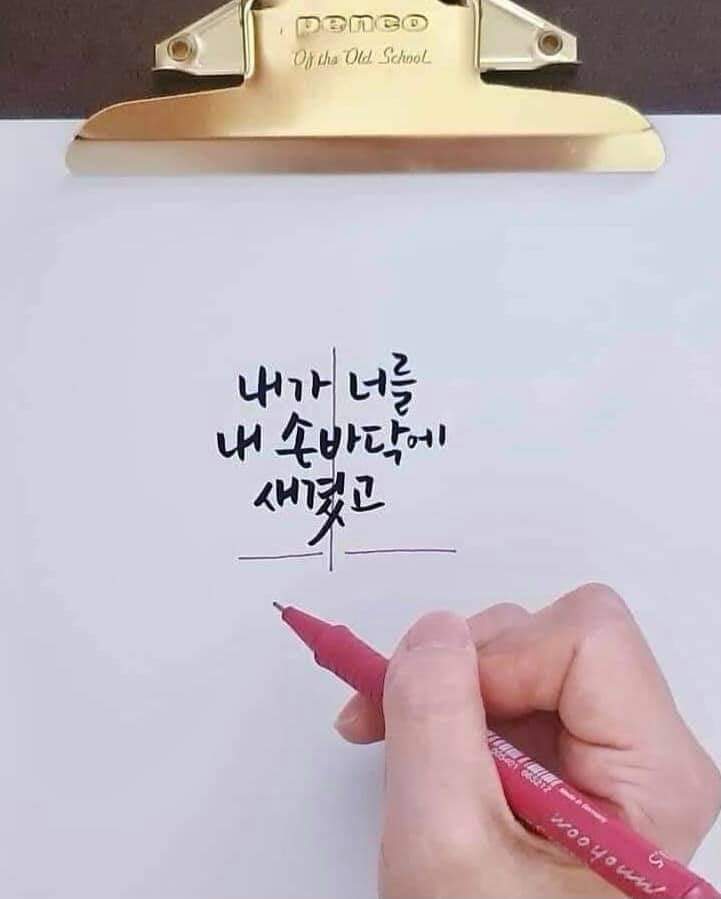 penco
Of the Old School
내가 너를
내 손바닥에
새겼고
Made in Germany
woohoom